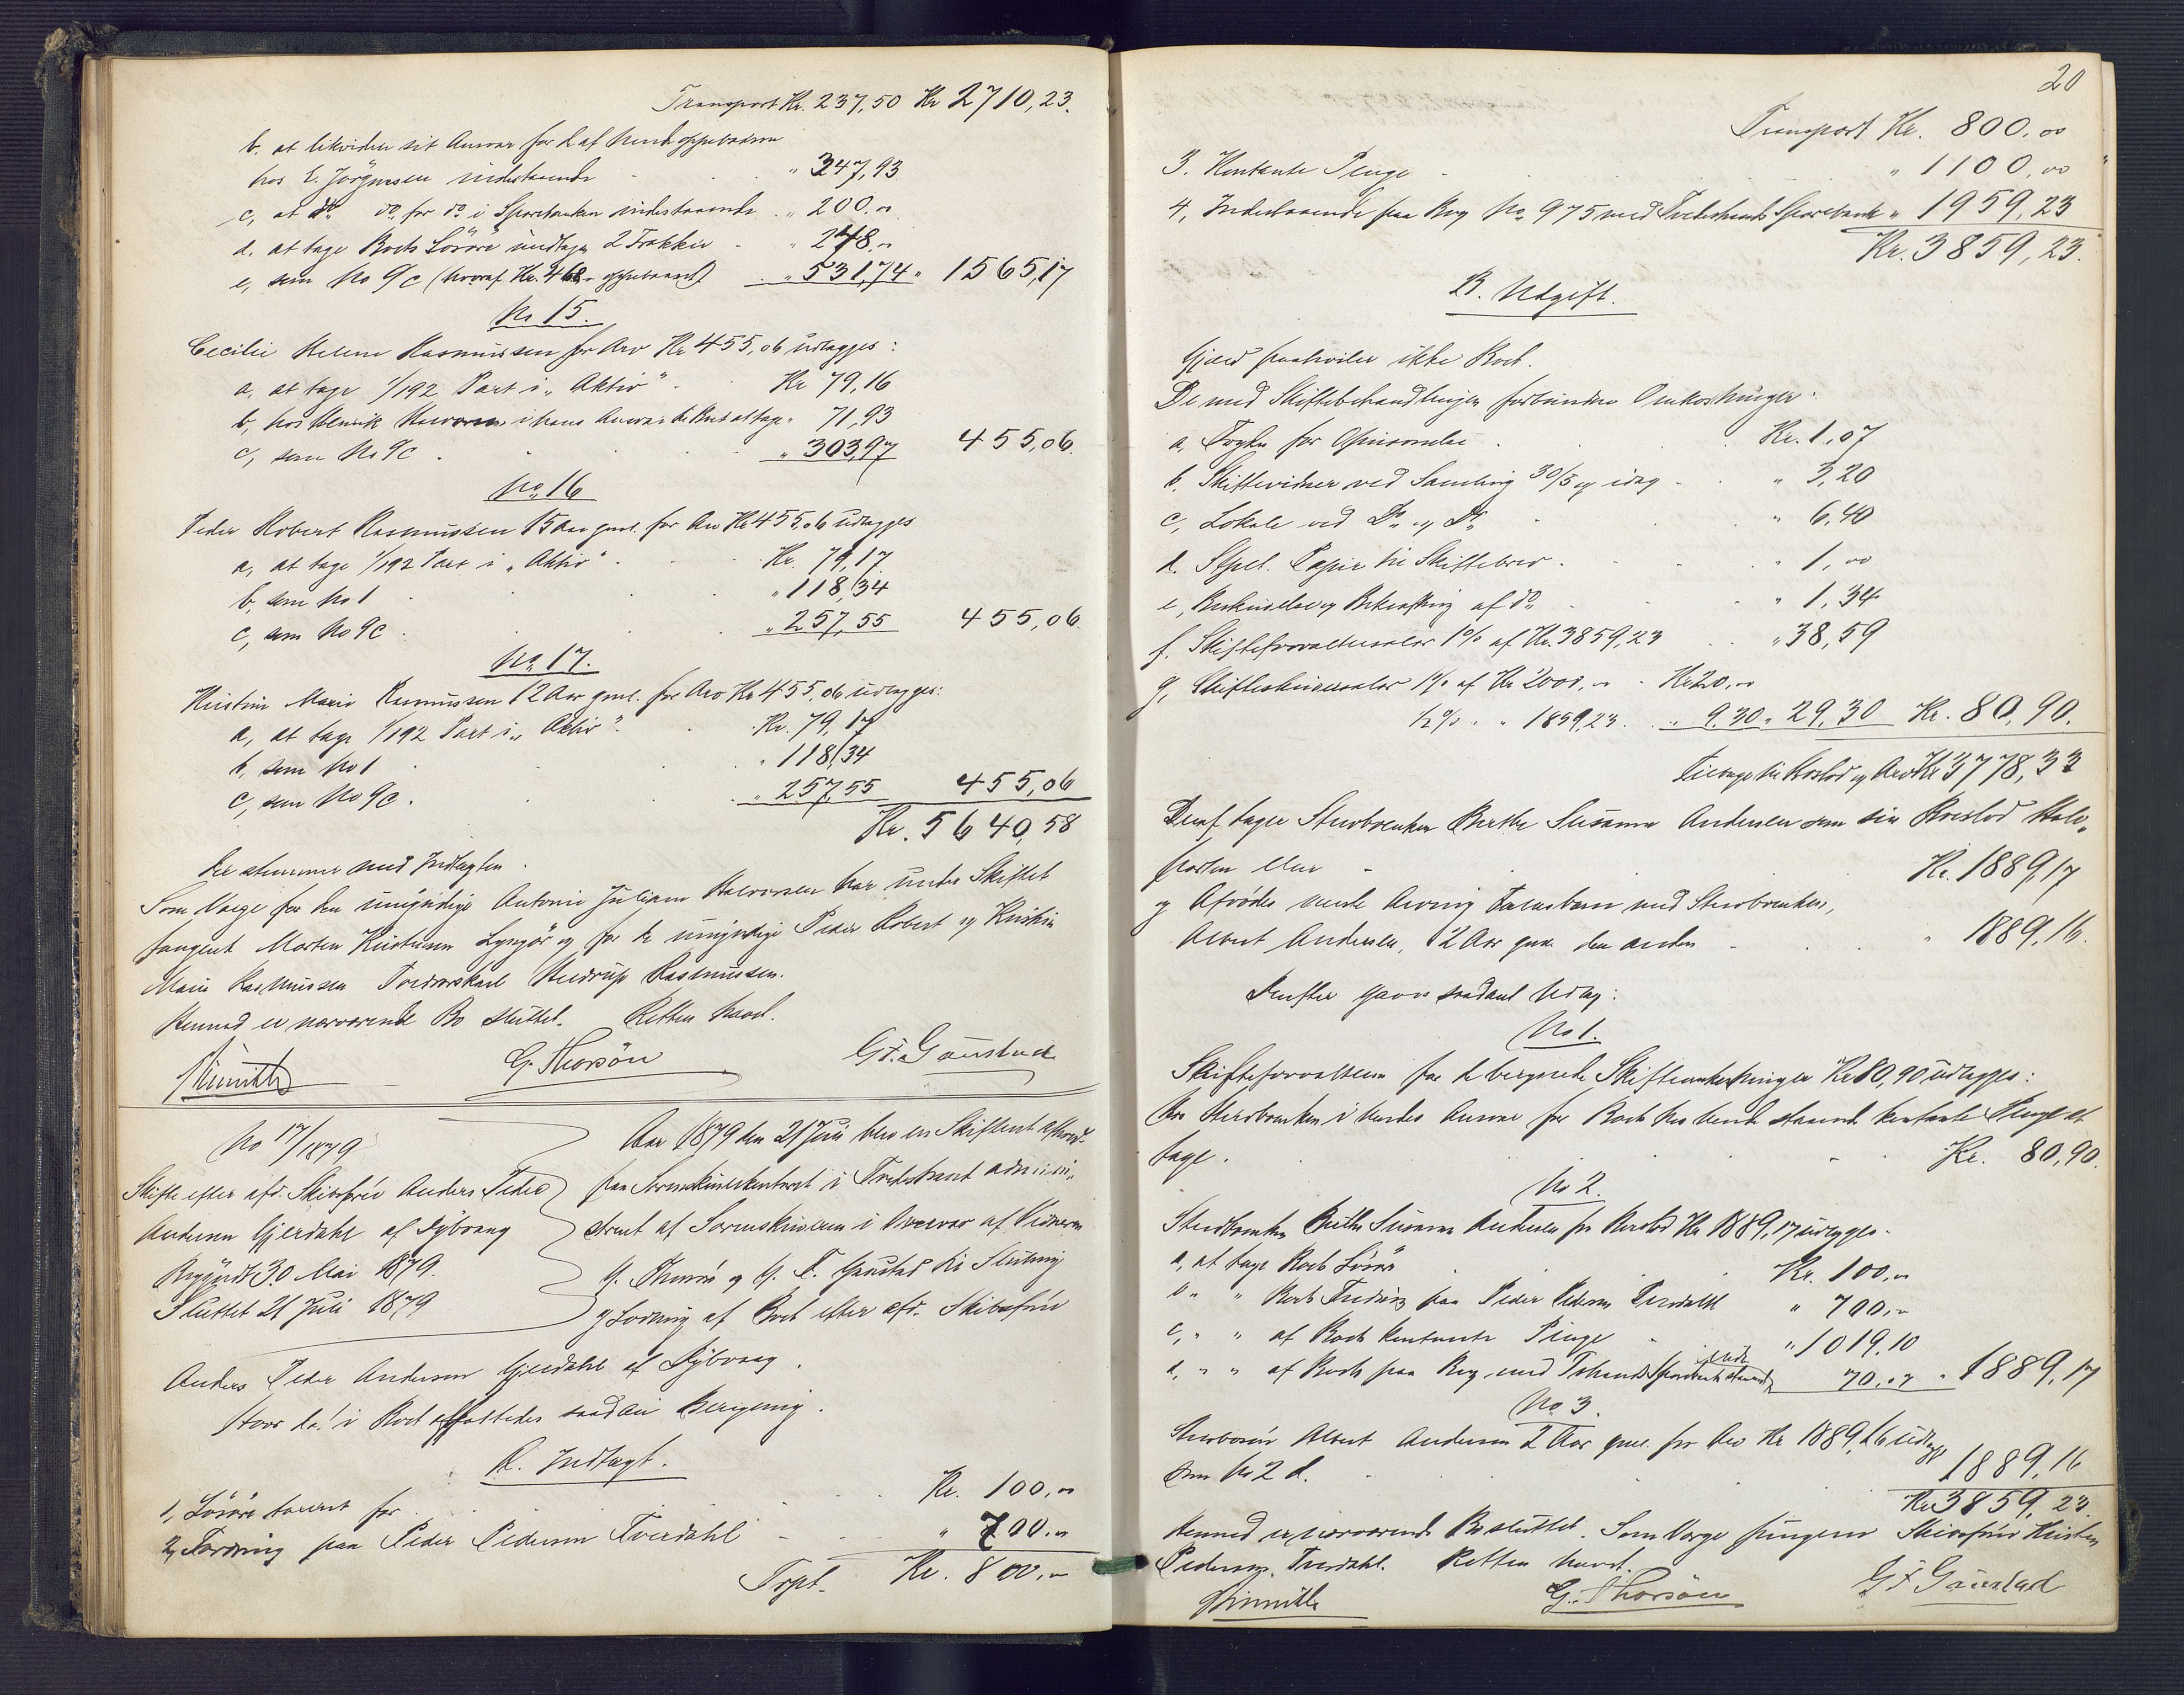 Transport Kr. 237,50 Kr 2710,23.
b. at likvidere sit Ansvar for d. af hende oppebaarne
hos E. Jörgensen indestaaende " 347,93
c, at do do for do i Sparebanken indestaaende " 200.„
d. at tage Boets Lösöre undtagen 2 Frakker " 248.„
e, som No 9c (hvoraf Kr. 468.- oppebaaret) " 531,74 " 1565,17
No 15.
Cecilie Helene Rasmussen for Arv Kr 455,06 udlægges:
a, at tage 1/192 Part i „Aktiv" Kr 79,16
b, hos Henrik i hans Ansvar til Boet at tage " 71,93
c, som No 9c " 303,97 455,06.
No 16
Peder Robert Rasmussen 15 Aar gml. for Arv Kr 455,06 udlægges
a, at tage 1/192 Part i „Aktiv" Kr. 79,17
b, som No 1 " 118,34
c, som No 9c " 257,55 455,06.
No 17.
Kristine Marie Rasmussen 12 Aar gml. for Arv Kr 455,06 udlægges:
a, at tage 1/192 Part i „Aktiv" Kr. 79,17
b, som No 1 " 118,34
c, som No 9c. " 257,55 455,06
Kr. 5640,58
der stemmer med Indtægten.
Som Værge for den umyndige Antonie Juliane Halvorsen har under Skiftet
fungeret Morten Kristensen Lyngör og for de umyndige Peder Robert og Kristine
Marie Rasmussen Rasmussen.
Hermed er nærværende Bo sluttet. Retten hævet.
G. Thorsön G. F. Gaustad
No 17/1879
Skifte efter afd. Skibsförer Anders Peder
Andersen Gjerdahl af Dybvaag
Begyndt 30 Mai 1879.
Sluttet 21 Juli 1879
Aar 1879 den 21 Juli blev en Skifteret afholdt
paa Sorenskriverkontoret i Tvedestrand admini-
streret af Sorenskriveren i Overvær af Vidnerne
G. Thorsön og G. F. Gaustad til Slutning
og Lodning af Boet efter afd. Skibsförer
Anders Peder Andersen Gjerdahl af Dybvaag.
Hvor da i Boet affattedes saadan Beregning.
A. Indtægt.
1, Lösöre taxeret for Kr. 100.„
2, Fordring paa Peder Pedersen Tverdahl " 700.„
Trpt. Kr. 800.„
20
Transport Kr. 800.00
3. Kontante Penge " 1100,00
4, Indestaaende paa Bog No 975 med Tvedestrands Sparebank " 1959,23
Kr. 3859,23.
B. Udgift.
Gjæld paahviler ikke Boet.
De med Skiftebehandlingen forbundne Omkostninger:
a, Kr. 1,07
b, Skiftevidner ved Samling 30/5 og idag " 3,20
c, Lokale ved Do og Do " 6,40
d. Stpl. Papir til Skiftebrev " 1,00
e, Beskrivelse og Bekræftning af do " 1,34
f. Skifteforvaltersalær 1% af Kr. 3859,23 " 38,59
g, Skifteskriversalær 1% af Kr 2000.„ Kr 20.„
1/2% " " 1859,23. " 9.30 " 29,30 Kr. 80,90.
Tilbage til Boslod og Arv Kr 3778,33
Deraf tager Stervboenken Berthe Susanne Andersen som sin Boeslod Halv-
parten eller Kr. 1889,17
og Afdödes eneste Arving Fællesbarn med Stervboenken,
Albert Andersen, 2 Aar gml. den anden " 1889,16.
Derefter gaves saadant Udlæg:
No 1.
Skifteforvalteren for de beregnede Skifteomkostninger Kr 80,90 udlægges:
hos Stervboenken i hendes Ansvar for Boets hos hende staaende kontante Penge at
tage. Kr. 80,90.
No 2.
Stervboenken Berthe Susanne Andersen for Boeslod Kr 1889,17 udlægges.
a, at tage Boets Lösöre Kr. 100.„
b " " Boets Fordring paa Peder Pedersen Tverdahl " 700.„
c, " " af Boets kontante Penge " 1019.10
d, " " af Boets paa Bog med Tstrands Sparebank inde staaende 70.07 " 1889,17
No 3.
Stervbosön Albert Andersen 2 Aar gml. for Arv Kr 1889,16 udlægges
som No 2 d. 1889,16
Kr 3859,23.
Hermed er nærværende Bo sluttet. Som Værge fungerer Skibsförer Kristen
Pedersen Tverdahl. Retten hævet.
G. Thorsön G F Gaustad